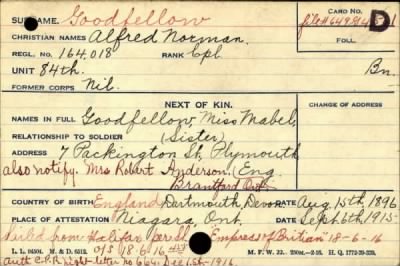 SURNAME. Goodfellow
CARD No.
CHRISTIAN NAMES Alfred Norman.
FOLL
REGL. No. 164,018 RANK Cpl
UNIT 84th. Bn.
FORMER CORPS Nil.
NEXT OF KIN.
CHANGE OF ADDRESS
NAMES IN FULL Goodfellow, Miss Mabel,
RELATIONSHIP TO SOLDIER (Sister)
ADDRESS 7 Packington St, Plymouth
also notify. Mrs Robert Anderson, (Eng.
Brantford Ont.
COUNTRY OF BIRTH England, Dartmouth, Devon DATE Aug 15th 1896
PLACE OF ATTESTATION Niagara, Ont. DATE Sept 6th 1915
from Halifax per SS "Empress of Britian" 18-6-16
L. L. M. & D. M. F. W. 22. H. Q. 1772-39-339.
auth C.P.R.